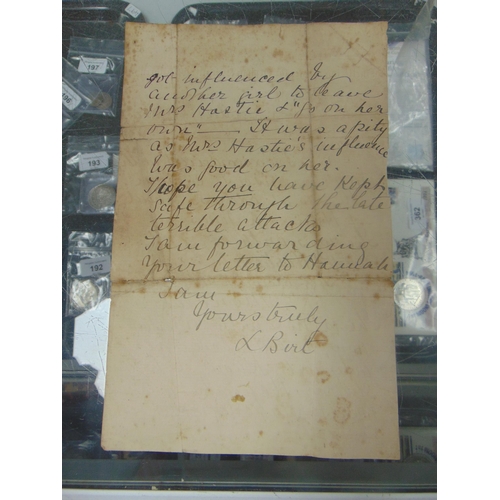 got influenced by
another girl to leave
Mrs Hastie & "go on her
own" — It was a pity
as Mrs Hastie's influence
was good on her.
I hope you have kept
safe through the late
terrible attacks
I am forwarding
your letter to Hannah
I am
Yours truly
L Birt
197
196
193
192
362